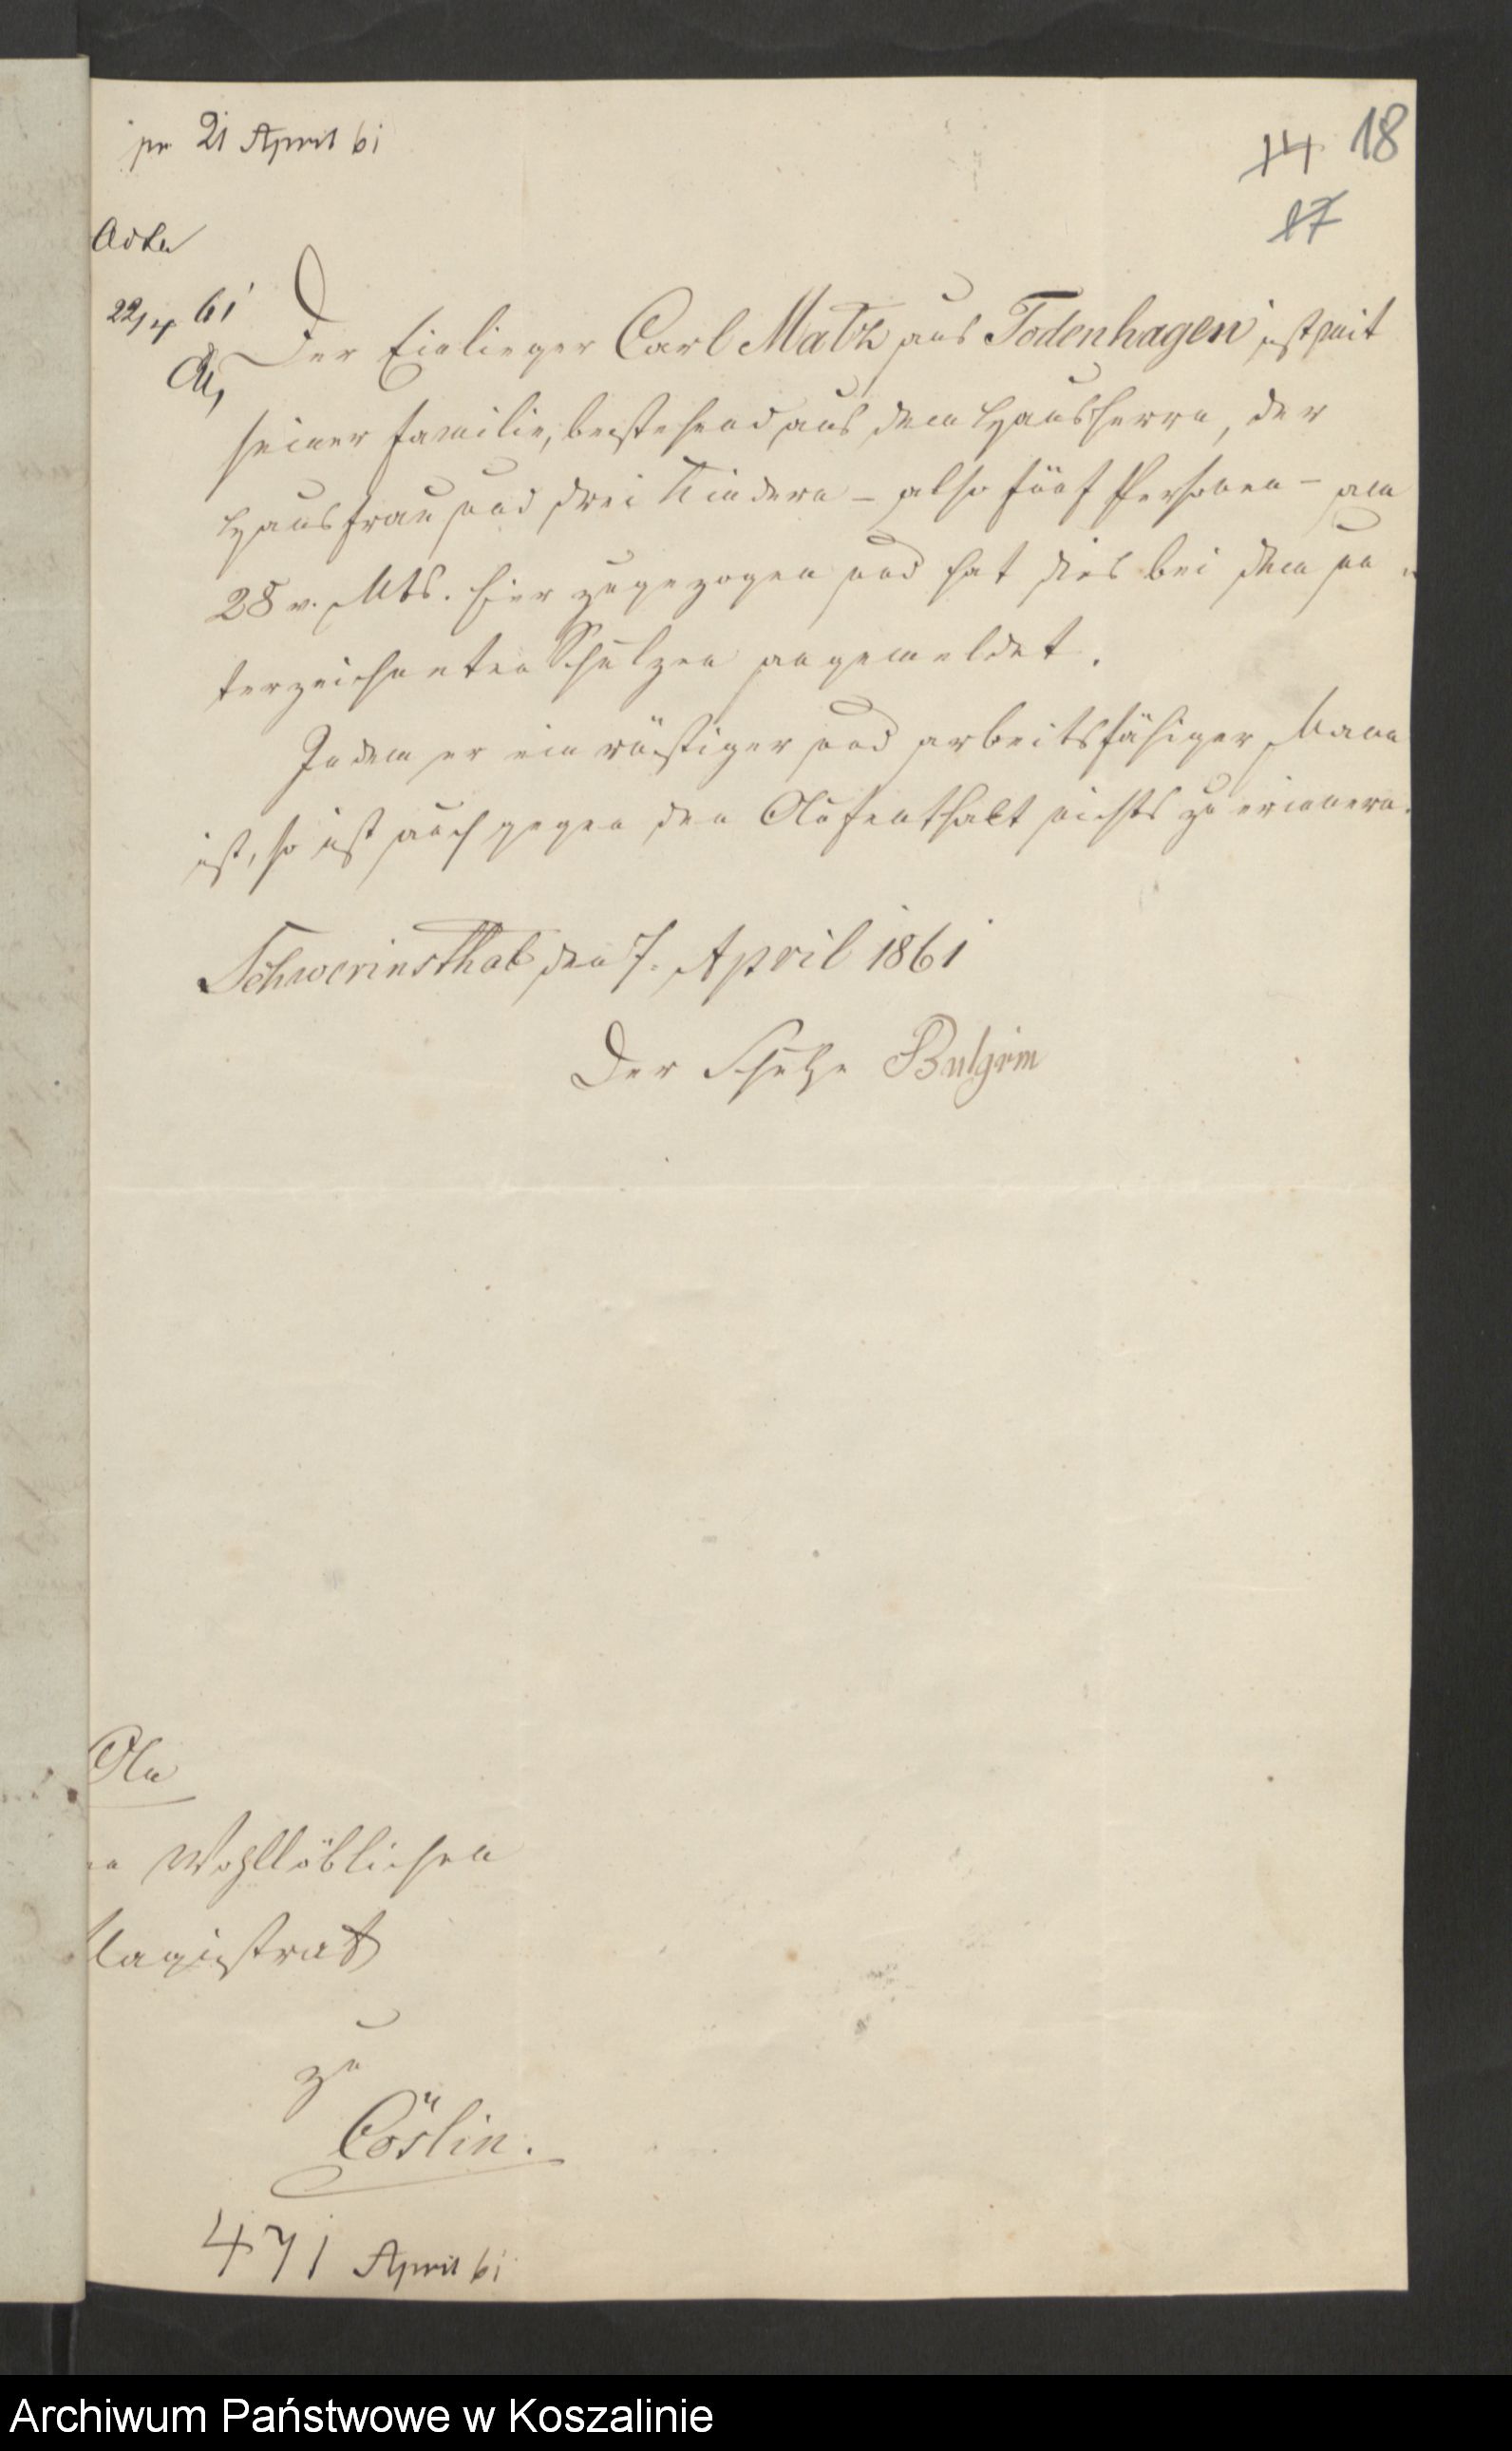 pr 21 April 61
14 18
17
Acta
22/4 61
Der Einlieger Carl Matz aus Todenhagen ist mit
seiner Familie, bestehend aus dem Hausherrn, der
Hausfrau und drei Kindern – also fünf Personen – am
28 v. Mts. hier zugezogen und hat dies bei dem un-
terzeichneten Schulzen angemeldet.
Indem er ein rüstiger und arbeitsfähiger Mann
ist, so ist auch gegen den Aufenthalt nichts zu erinnern.
Schwerinsthal den 7. April 1861
Der Schulze Bulgrin
An
Wohllöblichen
Magistrat
zu
Cöslin.
471 April 61
Archiwum Państwowe w Koszalinie